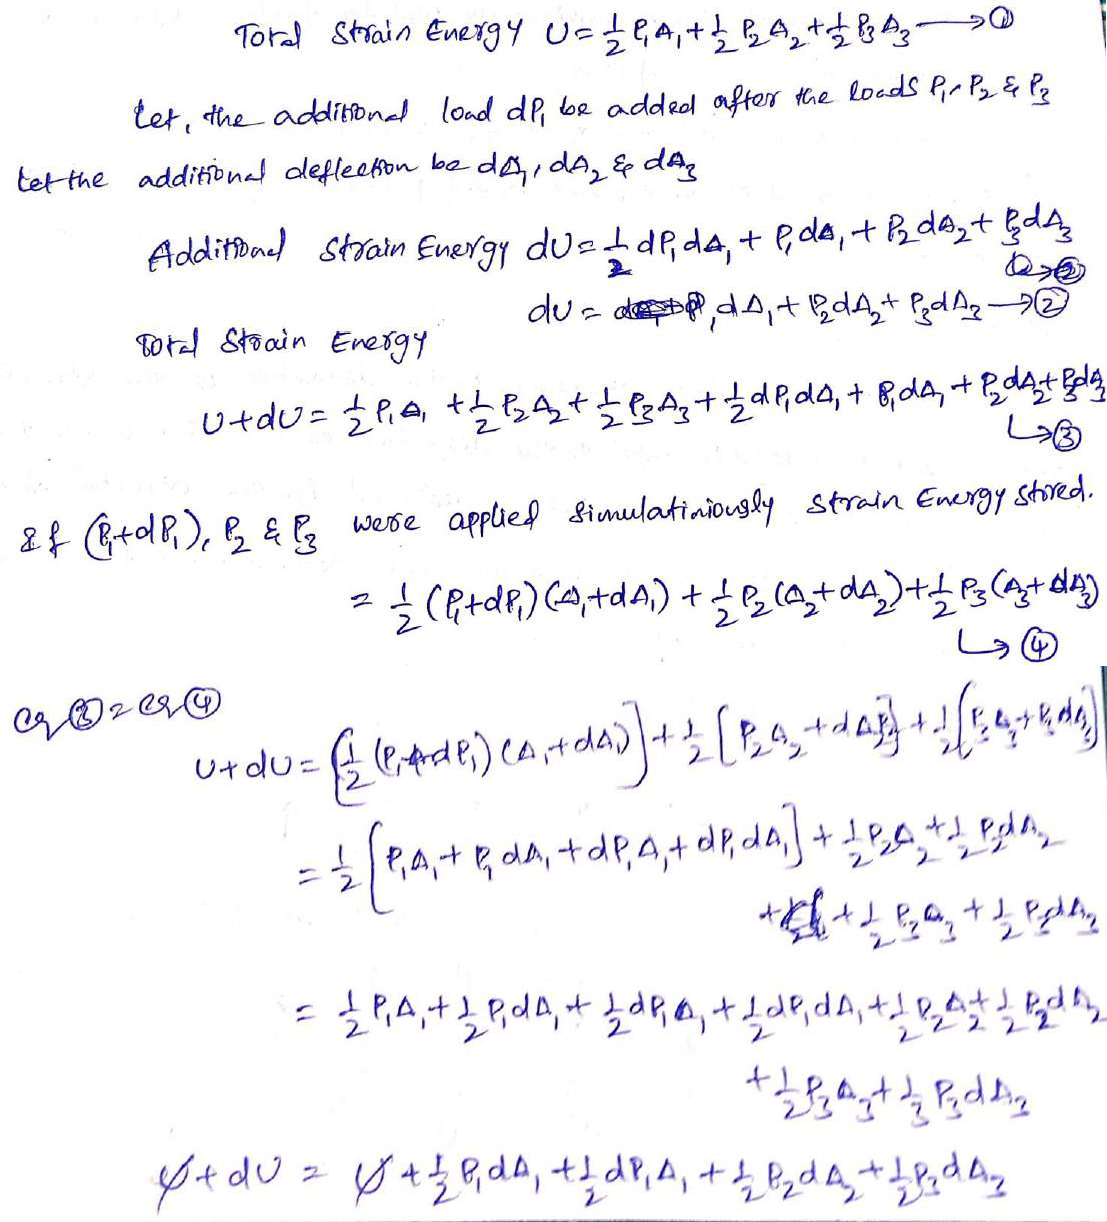 Total Strain Energy U = ½ P₁Δ₁ + ½ P₂Δ₂ + ½ P₃Δ₃ → ①
Let, the additional load dP₁ be added after the loads P₁, P₂ & P₃
Let the additional deflection be dΔ₁, dΔ₂ & dΔ₃
Additional Strain Energy dU = ½ dP₁dΔ₁ + P₁dΔ₁ + P₂dΔ₂ + P₃dΔ₃
dU = P₁dΔ₁ + P₂dΔ₂ + P₃dΔ₃ → ②
Total Strain Energy
U+dU = ½ P₁Δ₁ + ½ P₂Δ₂ + ½ P₃Δ₃ + ½ dP₁dΔ₁ + P₁dΔ₁ + P₂dΔ₂ + P₃dΔ₃
↳ ③
If (P₁+dP₁), P₂ & P₃ were applied simulatiniougly strain Energy stored.
= ½ (P₁+dP₁)(Δ₁+dΔ₁) + ½ P₂(Δ₂+dΔ₂) + ½ P₃(Δ₃+dΔ₃)
↳ ④
eq ③ = eq ④
U+dU = [½ (P₁+dP₁)(Δ₁+dΔ₁)] + ½ [P₂Δ₂ + dΔ₂P₂] + ½ [P₃Δ₃ + P₃dΔ₃]
= ½ [P₁Δ₁ + P₁dΔ₁ + dP₁Δ₁ + dP₁dΔ₁] + ½ P₂Δ₂ + ½ P₂dΔ₂
+ ½ P₃Δ₃ + ½ P₃dΔ₃
= ½ P₁Δ₁ + ½ P₁dΔ₁ + ½ dP₁Δ₁ + ½ dP₁dΔ₁ + ½ P₂Δ₂ + ½ P₂dΔ₂
+ ½ P₃Δ₃ + ⅓ P₃dΔ₃
U+dU = U + ½ P₁dΔ₁ + ½ dP₁Δ₁ + ½ P₂dΔ₂ + ½ P₃dΔ₃